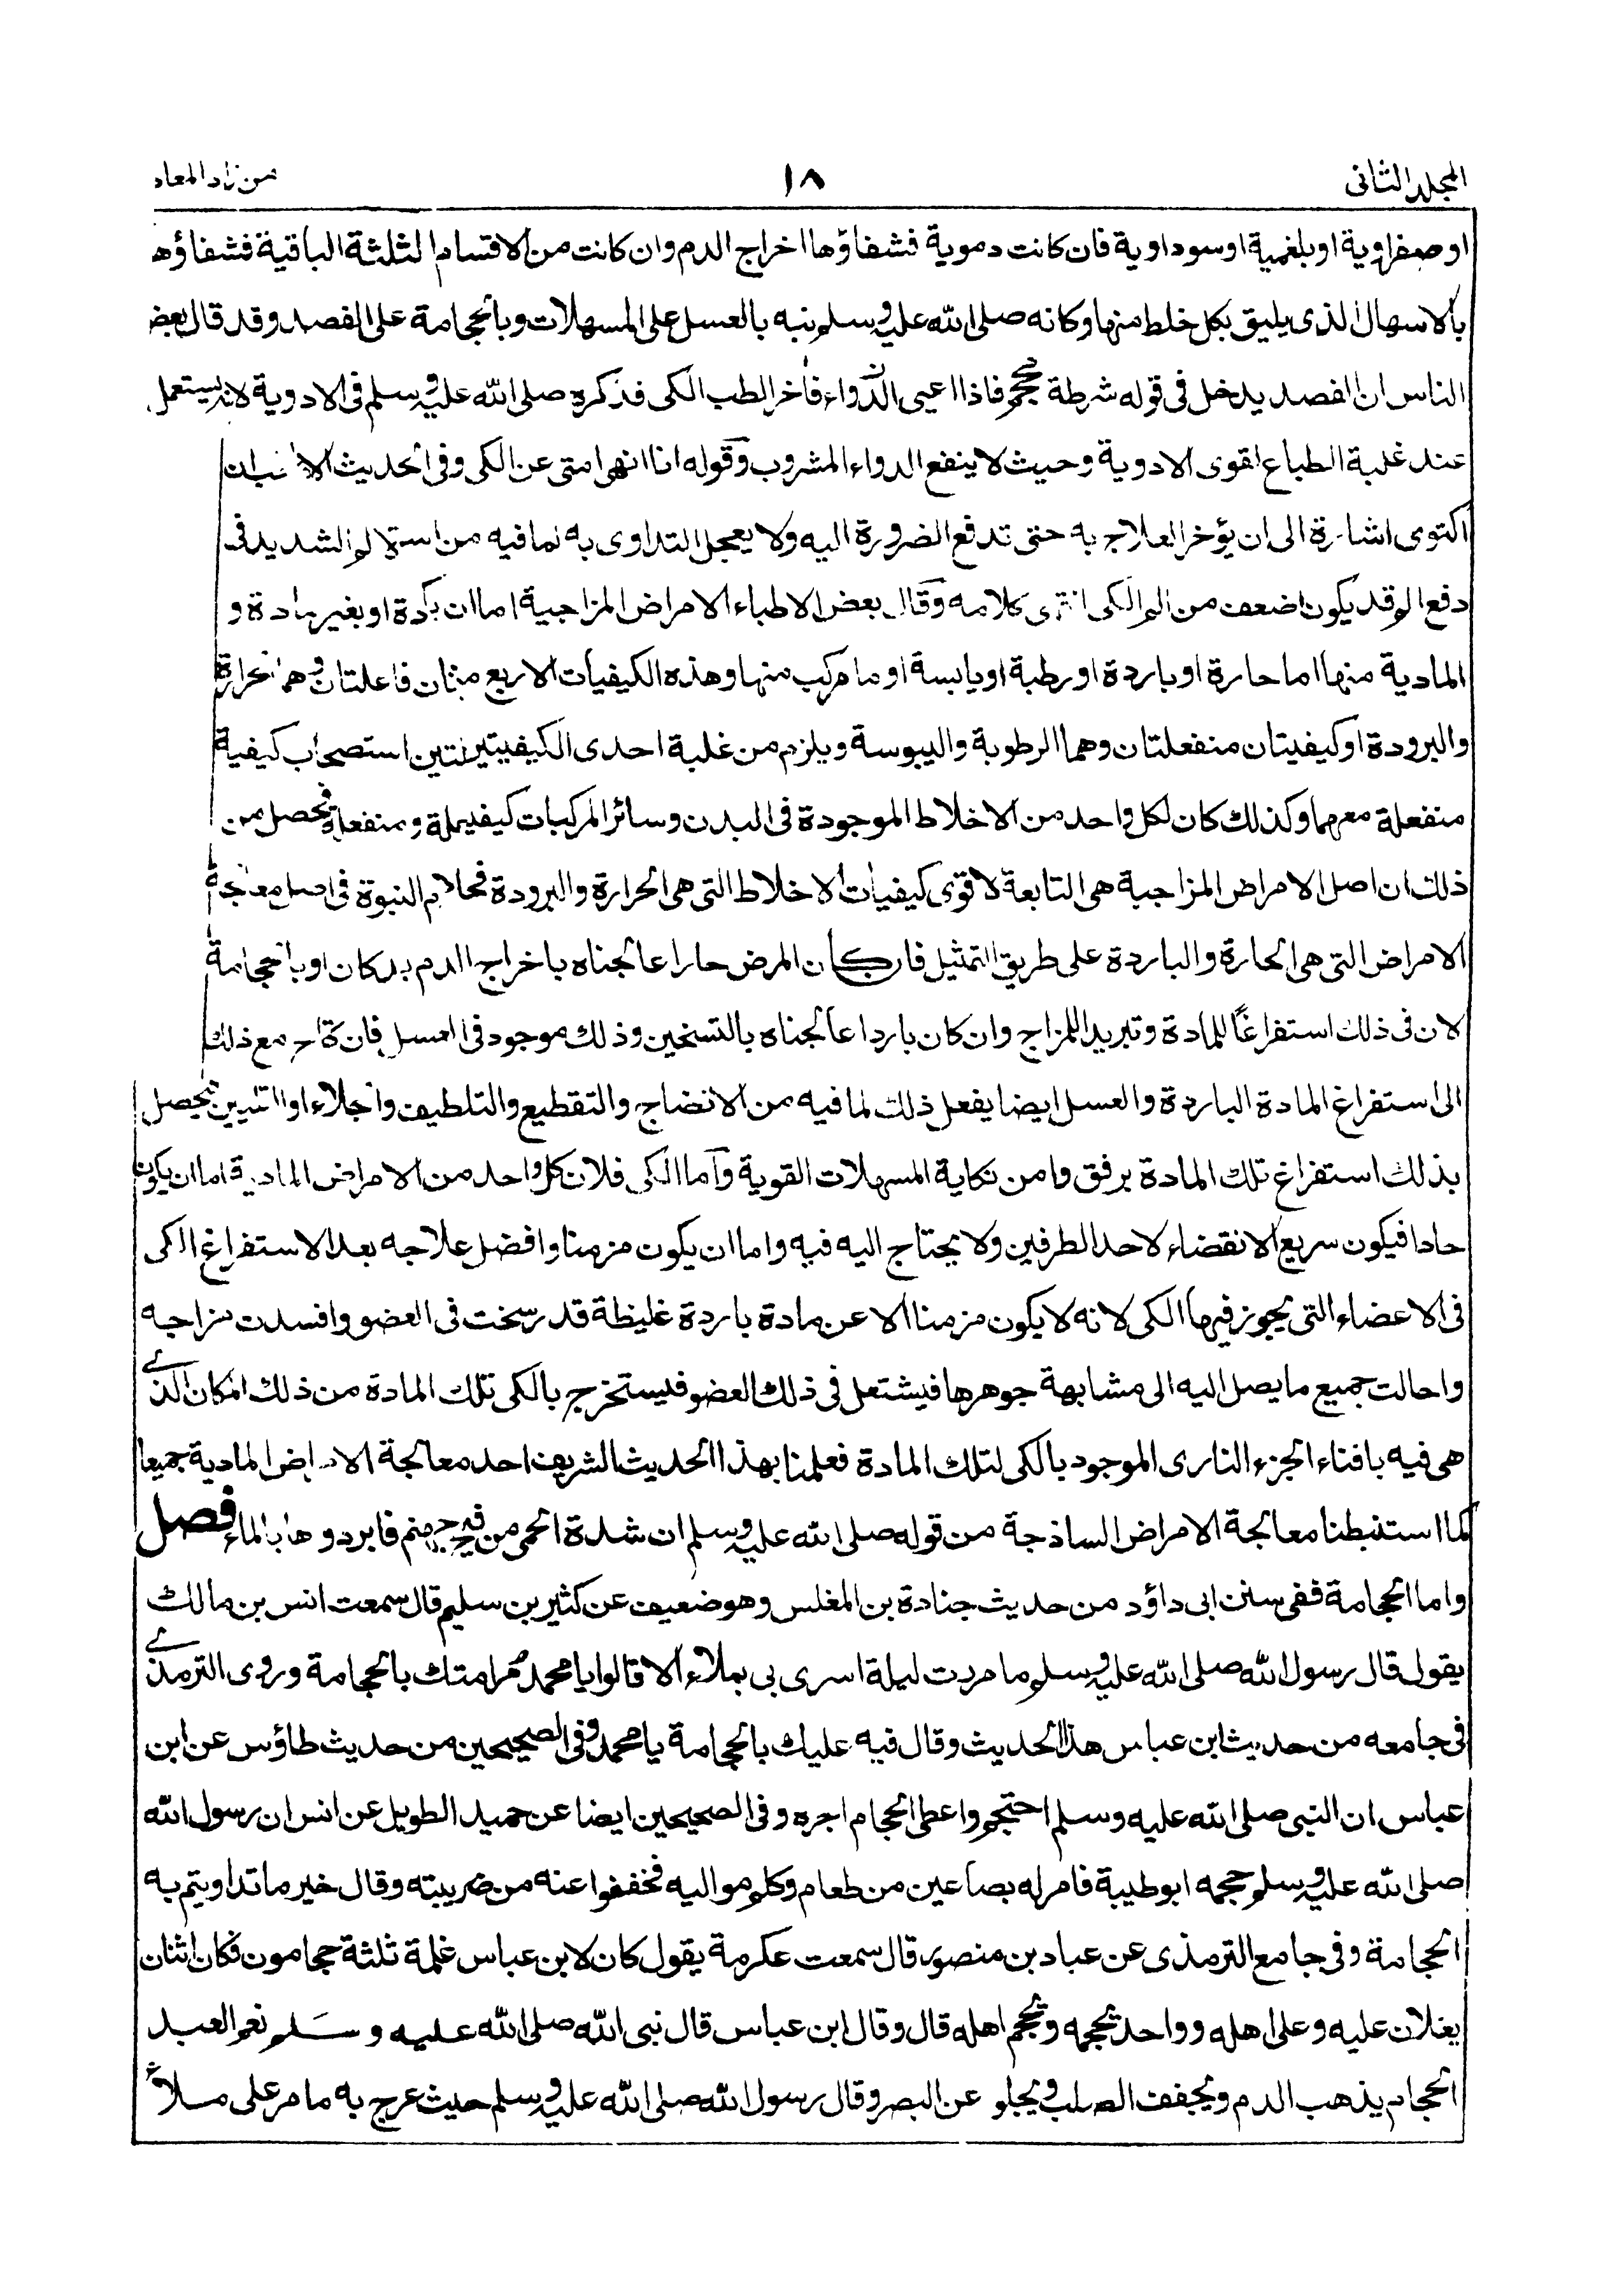 المجلد الثانى
١٨
من زاد المعاد
او صفراوية او بلغمية او سوداوية فان كانت دموية فشفاؤها اخراج الدم وان كانت من الاقسام الثلثة الباقية فشفاؤها
بالاسهال الذى يليق بكل خلط منها وكانه صلى الله عليه وسلم نبه بالعسل على المسهلات وبالحجامة على الفصد وقد قال بعض
الناس ان الفصد يدخل فى قوله شرطة محجم فاذا اعيى الدواء فاخر الطب الكى فذكره صلى الله عليه وسلم فى الادوية لانه يستعمل
عند غلبة الطباع لقوى الادوية وحيث لا ينفع الدواء المشروب وقوله انا انهى امتى عن الكى وفى الحديث الاخر ان
اكتوى اشارة الى ان يؤخر العلاج به حتى تدفع الضرورة اليه ولا يعجل التداوى به لما فيه من الشديد فى
دفع الم قد يكون اضعف من الم الكى انتهى كلامه وقال بعض الاطباء الامراض المزاجية اما ان بمادة او بغير مادة و
المادية منها اما حارة او باردة او رطبة او يابسة او ما تركب منها وهذه الكيفيات الاربع منها فاعلتان وهما الحرارة
والبرودة او كيفيتان منفعلتان وهما الرطوبة واليبوسة ويلزم من غلبة احدى الكيفيتين استصحاب كيفية
منفعلة معهما وكذلك كان لكل واحد من الاخلاط الموجودة فى البدن وسائر المركبات ومنفعلة فحصل من
ذلك ان اصل الامراض المزاجية هى التابعة لاقوى كيفيات الاخلاط التى هى الحرارة والبرودة فجاء كلام النبوة فى اصل معالجة
الامراض التى هى الحارة والباردة على طريق التمثيل فان كان المرض حارا عالجناه باخراج الدم كان او بالحجامة
لان فى ذلك استفراغًا للمادة وتبريد للمزاج وان كان باردا عالجناه بالتسخين وذلك موجود فى العسل فان مع ذلك
الى استفراغ المادة الباردة والعسل ايضا يفعل ذلك لما فيه من الانضاج والتقطيع والتلطيف والجلاء والتليين فيحصل
بذلك استفراغ تلك المادة برفق وامن نكاية المسهلات القوية واما الكى فلان كل واحد من الامراض المادية اما ان يكون
حادا فيكون سريع الانقضاء لاحد الطرفين ولا يحتاج اليه فيه واما ان يكون مزمنا وافضل علاجه بعد الاستفراغ الكى
فى الاعضاء التى يجوز فيها الكى لانه لا يكون مزمنا الا عن مادة باردة غليظة قد رسخت فى العضو وافسدت مزاجه
واحالت جميع ما يصل اليه الى مشابهة جوهرها فيشتعل فى ذلك العضو فيستخرج بالكى تلك المادة من ذلك المكان الذى
هى فيه بافناء الجزء النارى الموجود بالكى لتلك المادة فعلمنا بهذا الحديث الشريف احد معالجة الامراض المادية جميعا
كما استنبطنا معالجة الامراض الساذجة من قوله صلى الله عليه وسلم ان شدة الحمى من فيح جهنم فابردوها بالماء فصل
واما الحجامة ففى سنن ابى داؤد من حديث جنادة بن المغلس وهو ضعيف عن كثير بن سليم قال سمعت انس بن مالك
يقول قال رسول الله صلى الله عليه وسلم ما مررت ليلة اسرى بى بملاء الا قالوا يا محمد مر امتك بالحجامة وروى الترمذى
فى جامعه من حديث ابن عباس هذا الحديث وقال فيه عليك بالحجامة يا محمد وفى الصحيحين من حديث طاؤس عن ابن
عباس ان النبى صلى الله عليه وسلم احتجم واعطى الحجام اجره وفى الصحيحين ايضا عن حميد الطويل عن انس ان رسول الله
صلى الله عليه وسلم حجمه ابو طيبة فامر له بصاعين من طعام وكلم مواليه فخففوا عنه من ضريبته وقال خير ما تداويتم به
الحجامة وفى جامع الترمذى عن عباد بن منصور قال سمعت عكرمة يقول كان لابن عباس غلمة ثلثة حجامون فكان اثنان
يغلان عليه وعلى اهله وواحد يحجمه ويحجم اهله قال وقال ابن عباس قال نبى الله صلى الله عليه وسلم نعم العبد
الحجام يذهب الدم ويجفف الصلب ويجلو عن البصر وقال رسول الله صلى الله عليه وسلم حيث عرج به ما مر على ملأ